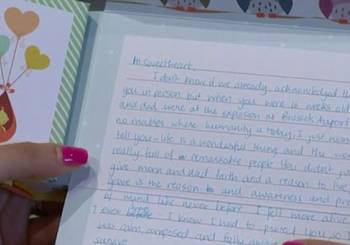 Hi Sweetheart,
I don't know if we already acknowledged th
you in person but when you were 16 weeks old
and dad were at the explosion at Brussels Airport
no matter where humanity is today, I just wan
tell you - life is a wonderful thing and the wor
really full of remarkable people. You didn't just
give mom and dad faith and a reason to live
love is the reason and awareness and pre
of mind like never before. I felt more alive
I ever . I knew I had to protect you, so I
was calm, composed and fully
survive